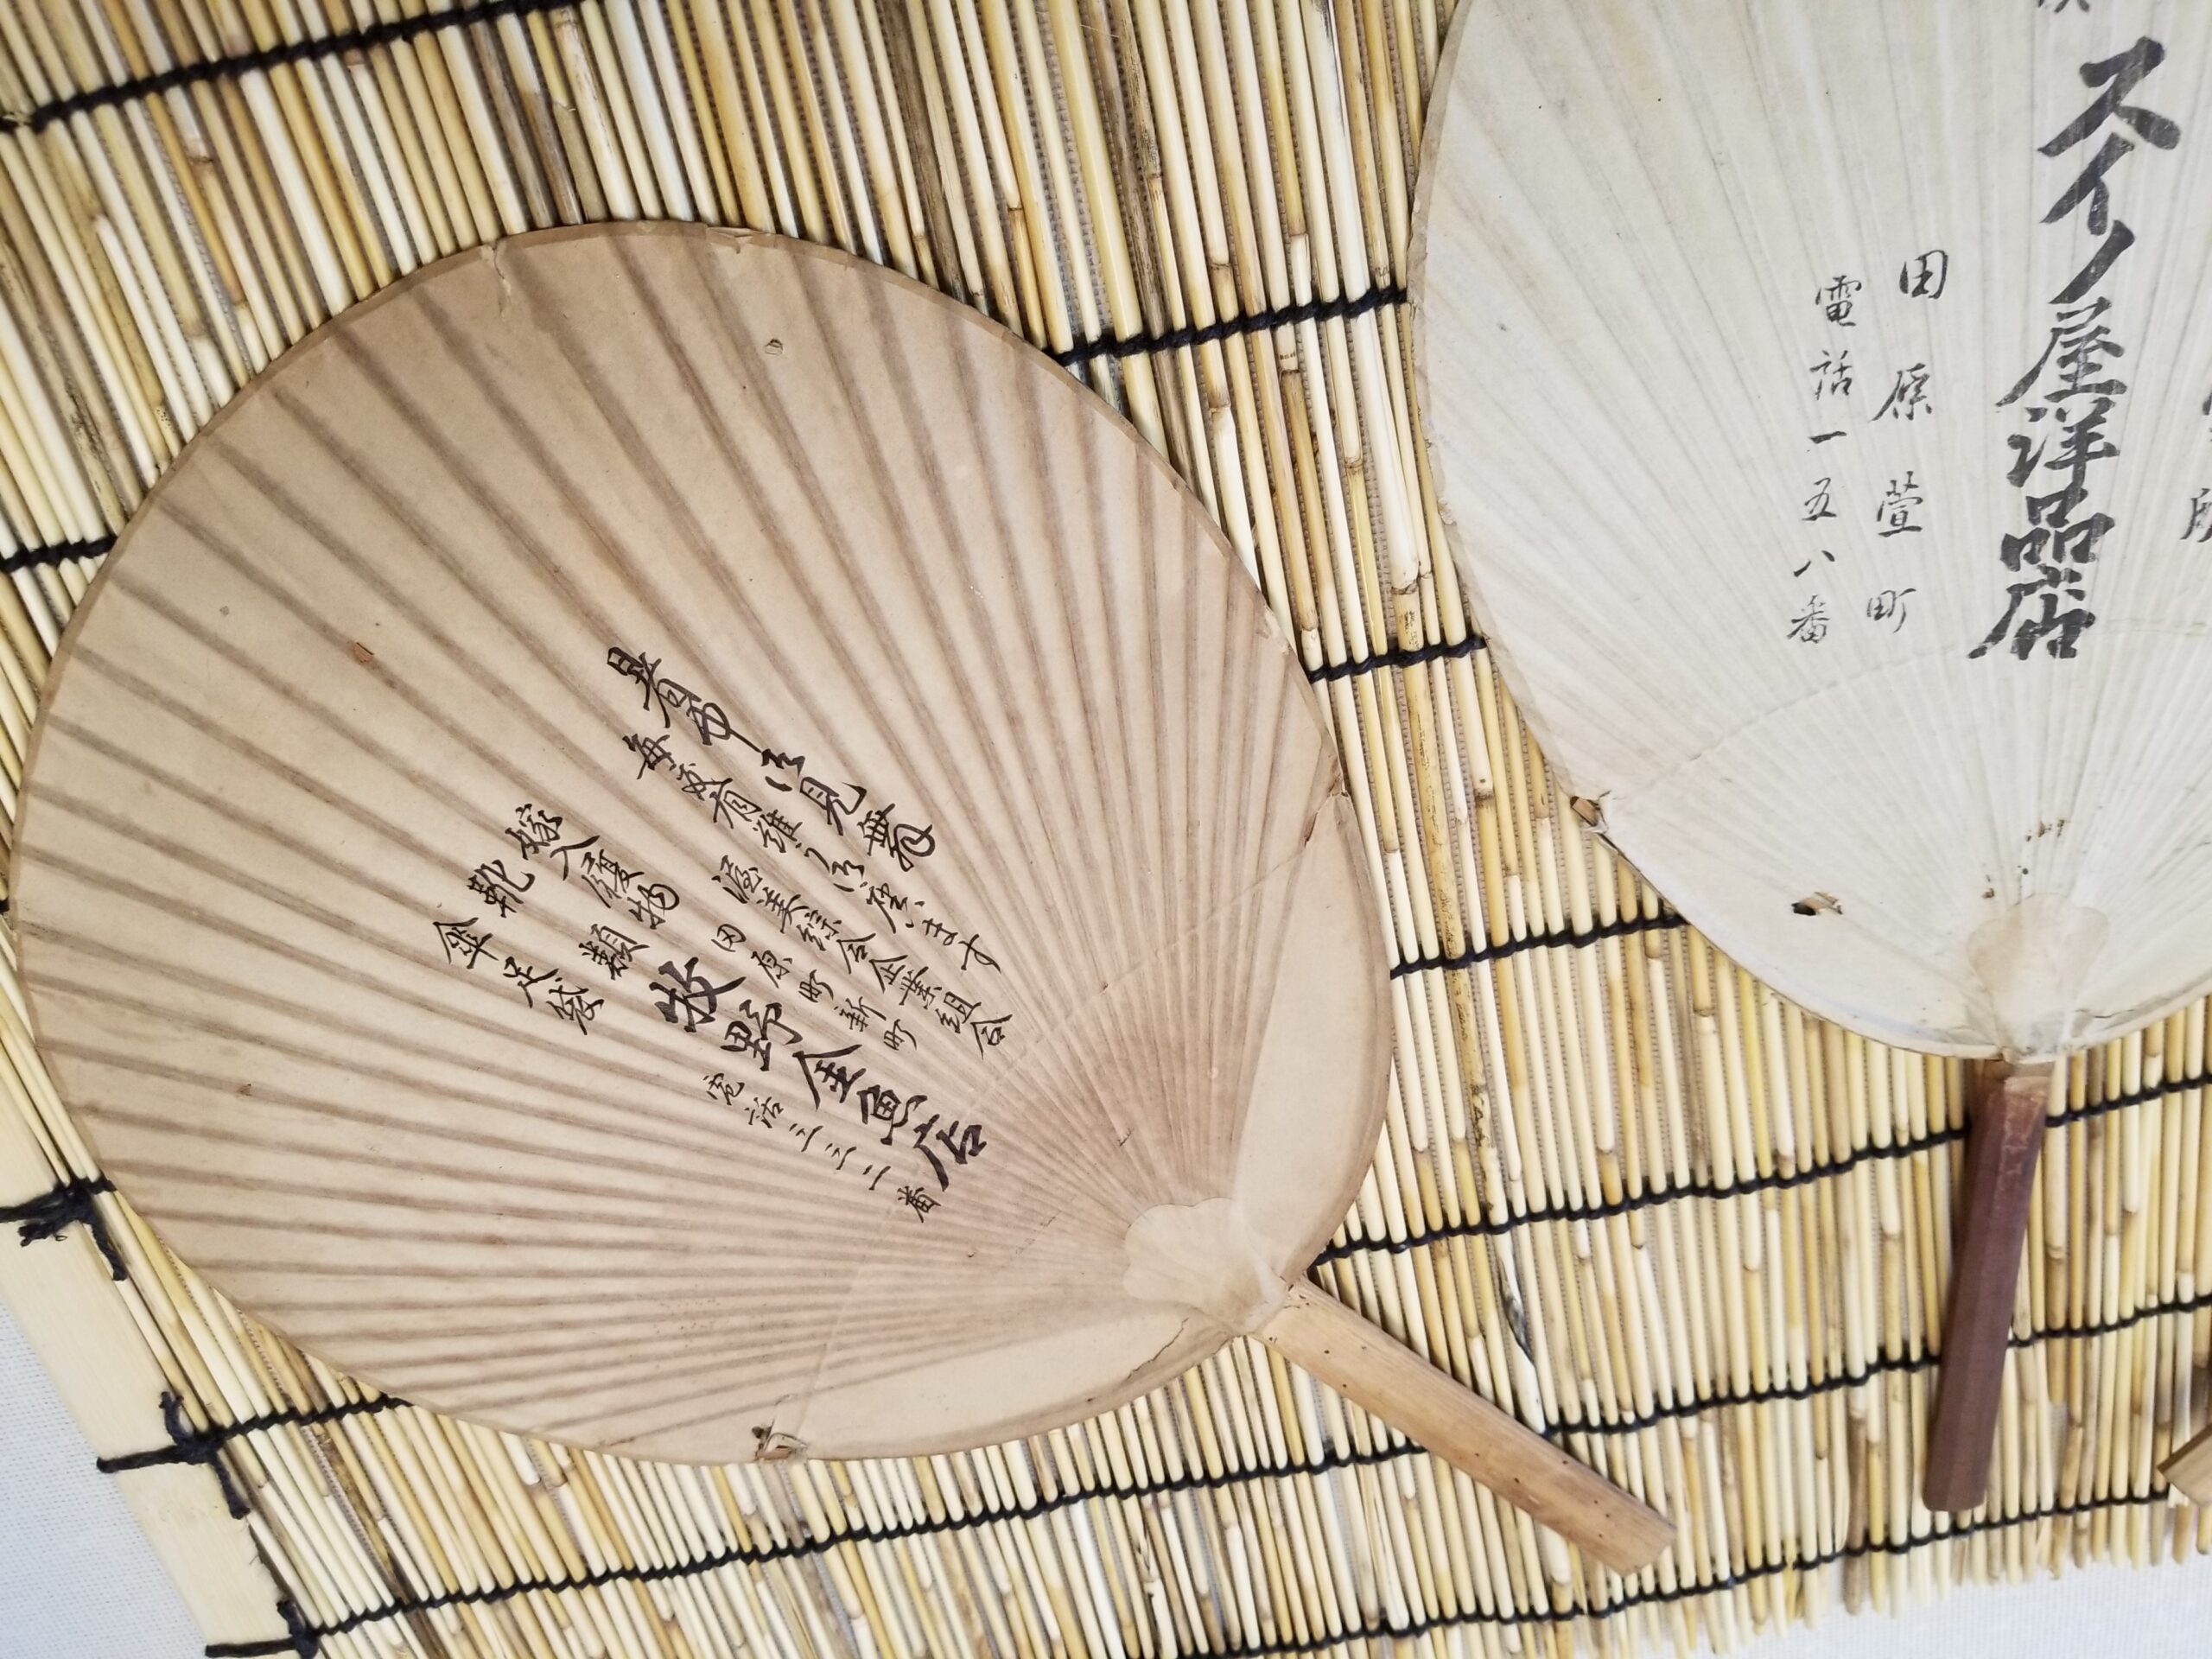 スイノ屋洋品店
田原萱町
電話一五八番
暑中御見舞
毎度有難う御座います
渥美綜合企業組合
田原町新町
嫁入履物
靴 類
傘 足袋
牧野金魚店
電話三三二番